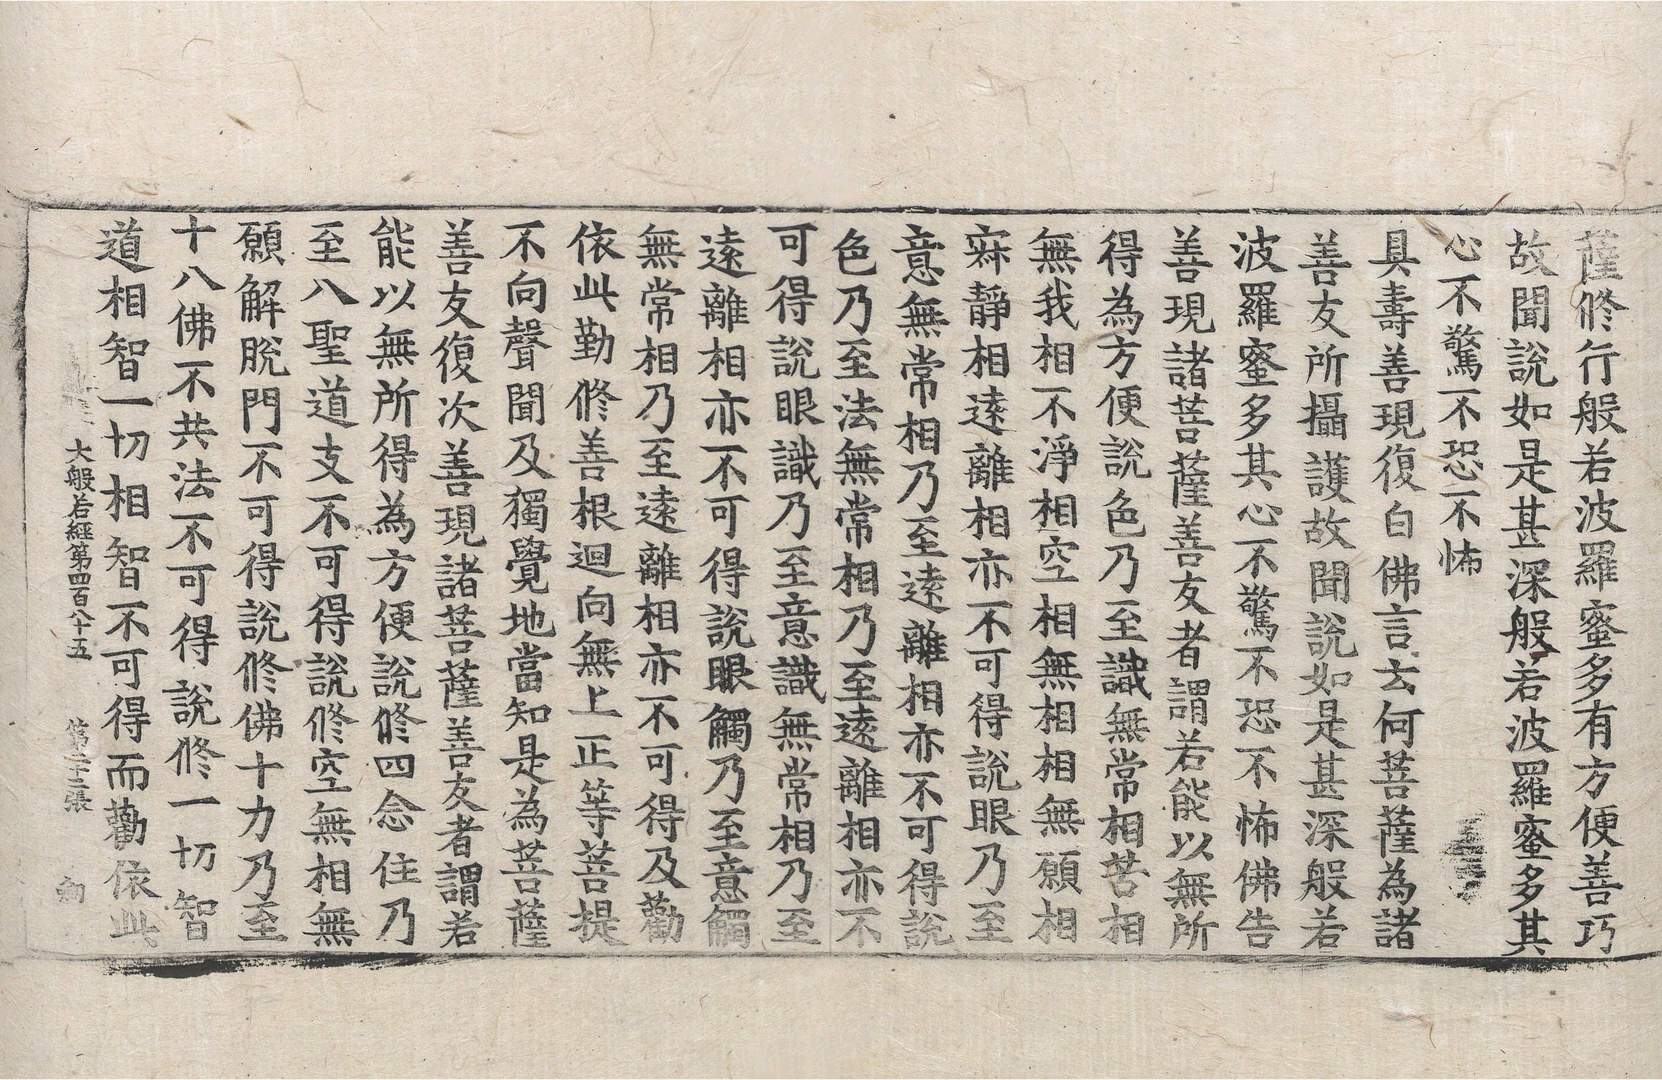 薩修行般若波羅蜜多有方便善巧
故聞說如是甚深般若波羅蜜多其
心不驚不恐不怖
具壽善現復白佛言云何菩薩為諸
善友所攝護故聞說如是甚深般若
波羅蜜多其心不驚不恐不怖佛告
善現諸菩薩善友者謂若能以無所
得為方便說色乃至識無常相苦相
無我相不淨相空相無相相無願相
寂靜相遠離相亦不可得說眼乃至
意無常相乃至遠離相亦不可得說
色乃至法無常相乃至遠離相亦不
可得說眼識乃至意識無常相乃至
遠離相亦不可得說眼觸乃至意觸
無常相乃至遠離相亦不可得及勸
依此勤修善根迴向無上正等菩提
不向聲聞及獨覺地當知是為菩薩
善友復次善現諸菩薩善友者謂若
能以無所得為方便說修四念住乃
至八聖道支不可得說修空無相無
願解脫門不可得說修佛十力乃至
十八佛不共法不可得說修一切智
道相智一切相智不可得而勸依此
大般若經第四百八十五 第十二張